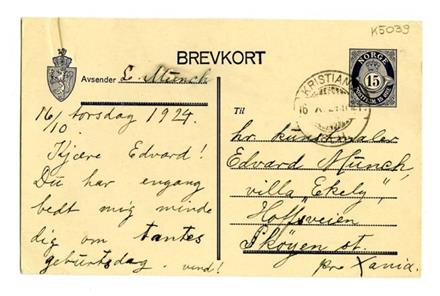 K5039
BREVKORT
Avsender L. Munch
NORGE
15
KRISTIANIA
16/10. torsdag 1924.
Kjære Edvard!
Du har engang
bedt mig minde
dig om tantes
geburtsdag. vend!
Til
hr. kunstmaler
Edvard Munch,
villa "Ekely",
Hoffsveien
Skøyen st.
pr Xania.